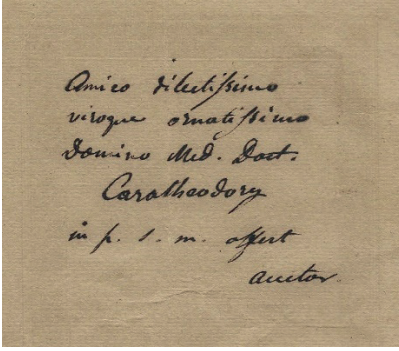 Amico dilectissimo
viroque ornatissimo
Domino Med. Doct.
Caratheodory
in p. s. m. offert
auctor.